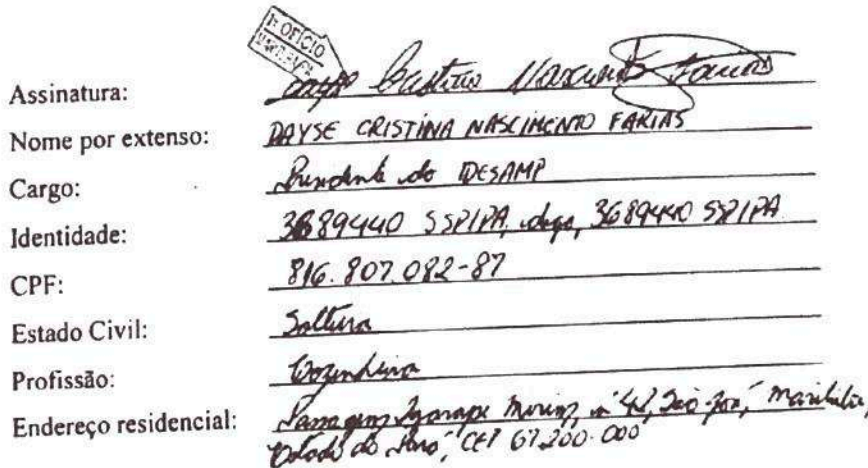 1º OFÍCIO
MARITUBA/PA
Assinatura: Dayse Cristina Nascimento Farias
Nome por extenso: DAYSE CRISTINA NASCIMENTO FARIAS
Cargo: Presidente do IDESAMP
Identidade: 3689440 SSP/PA, digo, 3689440 SSP/PA
CPF: 816.807.082-87
Estado Civil: Solteira
Profissão: Cozinheira
Endereço residencial: Passagem Igarapé Mirim, nº 42, São José, Marituba,
Estado do Pará, CEP 67.200-000